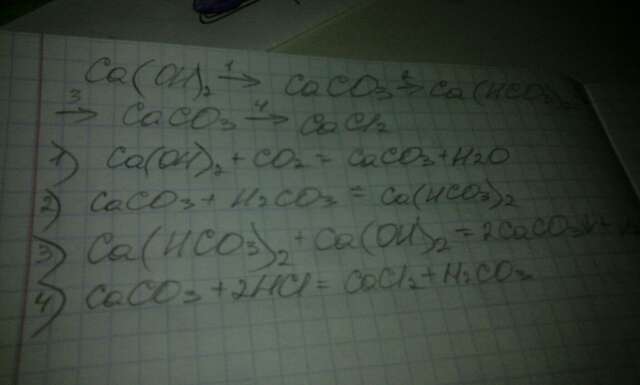 Ca(OH)₂ →¹ CaCO₃ →² Ca(HCO₃)₂
→³ CaCO₃ →⁴ CaCl₂
1) Ca(OH)₂ + CO₂ = CaCO₃ + H₂O
2) CaCO₃ + H₂CO₃ = Ca(HCO₃)₂
3) Ca(HCO₃)₂ + Ca(OH)₂ = 2CaCO₃↓ +
4) CaCO₃ + 2HCl = CaCl₂ + H₂CO₃